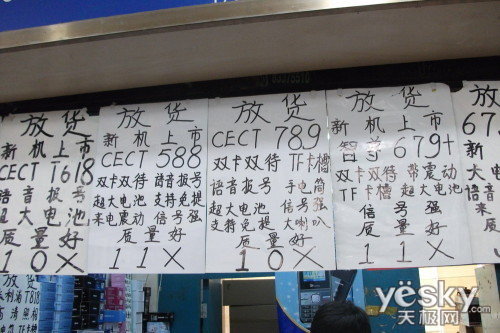 放货
新机上市
CECT T618
语音报号
超大电池
质量好
10X
放货
新机上市
CECT 588
双卡双待 语音报号
超大电池 支持免提
来电震动 信号强
质量好
11X
放货
CECT 789
双卡双待 TF卡槽
语音报号 手电筒
超大电池 信号强
支持免提 大喇叭
质量好
10X
放货
新机上市
679+
双卡双待 带震动
TF卡槽 超大电池
信号强
质量好
11X
放
67
放货
T818
yesky
天极网